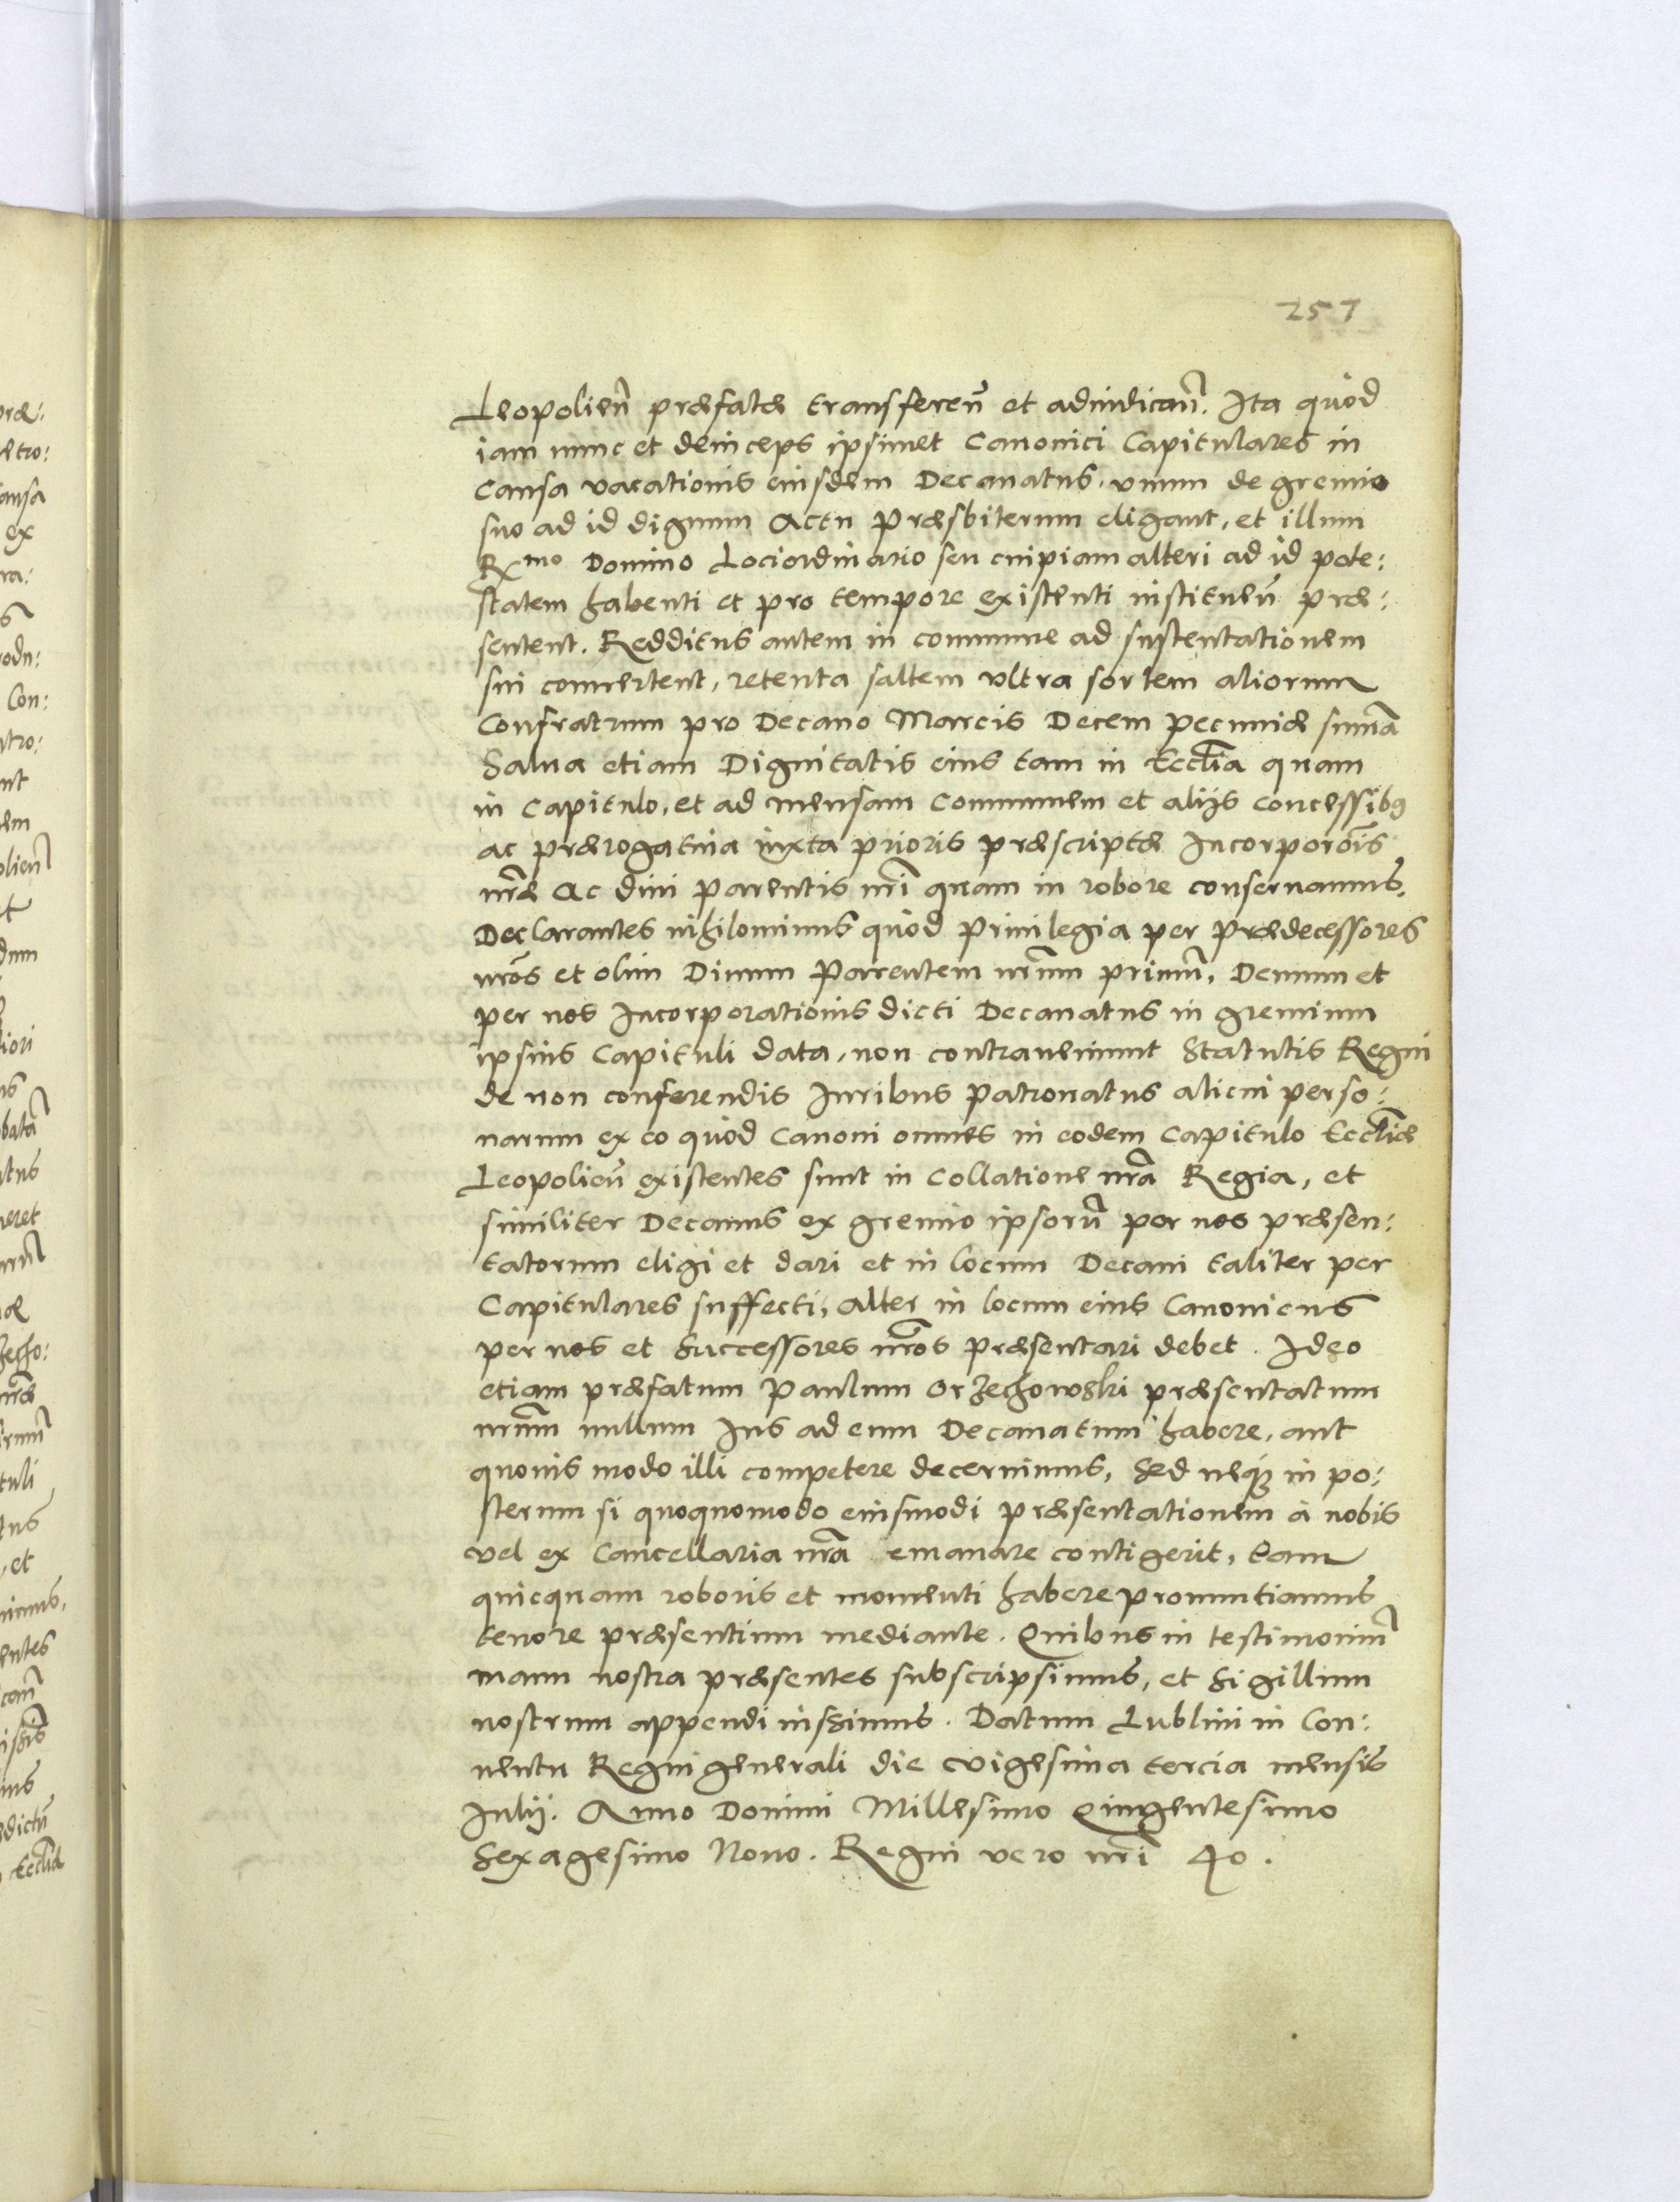 257
Leopolien̄ præfatæ transferen̄ et adiudican̄. Ita quod
iam nunc et deinceps ipsimet Canonici Capitulares in
Causa vacationis eiusdem Decanatus, vnum de gremio
suo ad id dignum Actu Præsbiterum eligant, et illum
Rmo Domino Lociordinario seu cuipiam alteri ad id pote:
statem habenti et pro tempore existenti instituen̄ præ:
sentent. Redditus autem in commune ad sustentationem
sui conuertent, retenta saltem vltra sortem aliorum
Confratrum pro Decano Marcis Decem pecuniæ sum̄ā
Salua etiam Dignitatis eius tam in Eccl̄ia quam
in Capitulo, et ad mensam Communem et alijs concessibꝰ
ac prærogatiua iuxta prioris præscriptæ Incorporōis
nr̄æ Ac diui Parentis nr̄i quam in robore conseruamus,
Declarantes nihilominus quod Priuilegia per Prædecessores
nr̄os et olim Diuum Parentem nr̄um primū, Demum et
per nos Incorporationis dicti Decanatus in gremium
ipsius Capituli data, non contraueniunt Statutis Regni
de non conferendis Iuribus Patronatus alicui perso:
narum ex eo quod Canoni omnes in eodem Capitulo Eccl̄iæ
Leopolien̄ existentes sunt in Collatione nr̄a Regia, et
similiter Decanus ex gremio ipsorū per nos præsen:
tatorum eligi et dari et in locum Decani taliter per
Capitulares suffecti, alter in locum eius Canonicus
per nos et Successores nr̄os præsentari debet. Ideo
etiam præfatum Paulum Orzechowski præsentatum
nr̄um nullum Ius ad eum Decanatum habere, aut
quouis modo illi competere decernimus, Sed neqꝫ in po:
sterum si quoquomodo eiusmodi præsentationem à nobis
vel ex Cancellaria nr̄a emanare contigerit, eam
quicquam roboris et momenti habere pronuntiamus
tenore præsentium mediante. Quibus in testimoniū
manu nostra præsentes subscripsimus, et Sigillum
nostrum appendi iussimus. Datum Lublini in Con:
uentu Regni generali die vigesima tercia mensis
Iulij. Anno Domini Millesimo Quingentesimo
Sexagesimo Nono. Regni vero nr̄i 40.